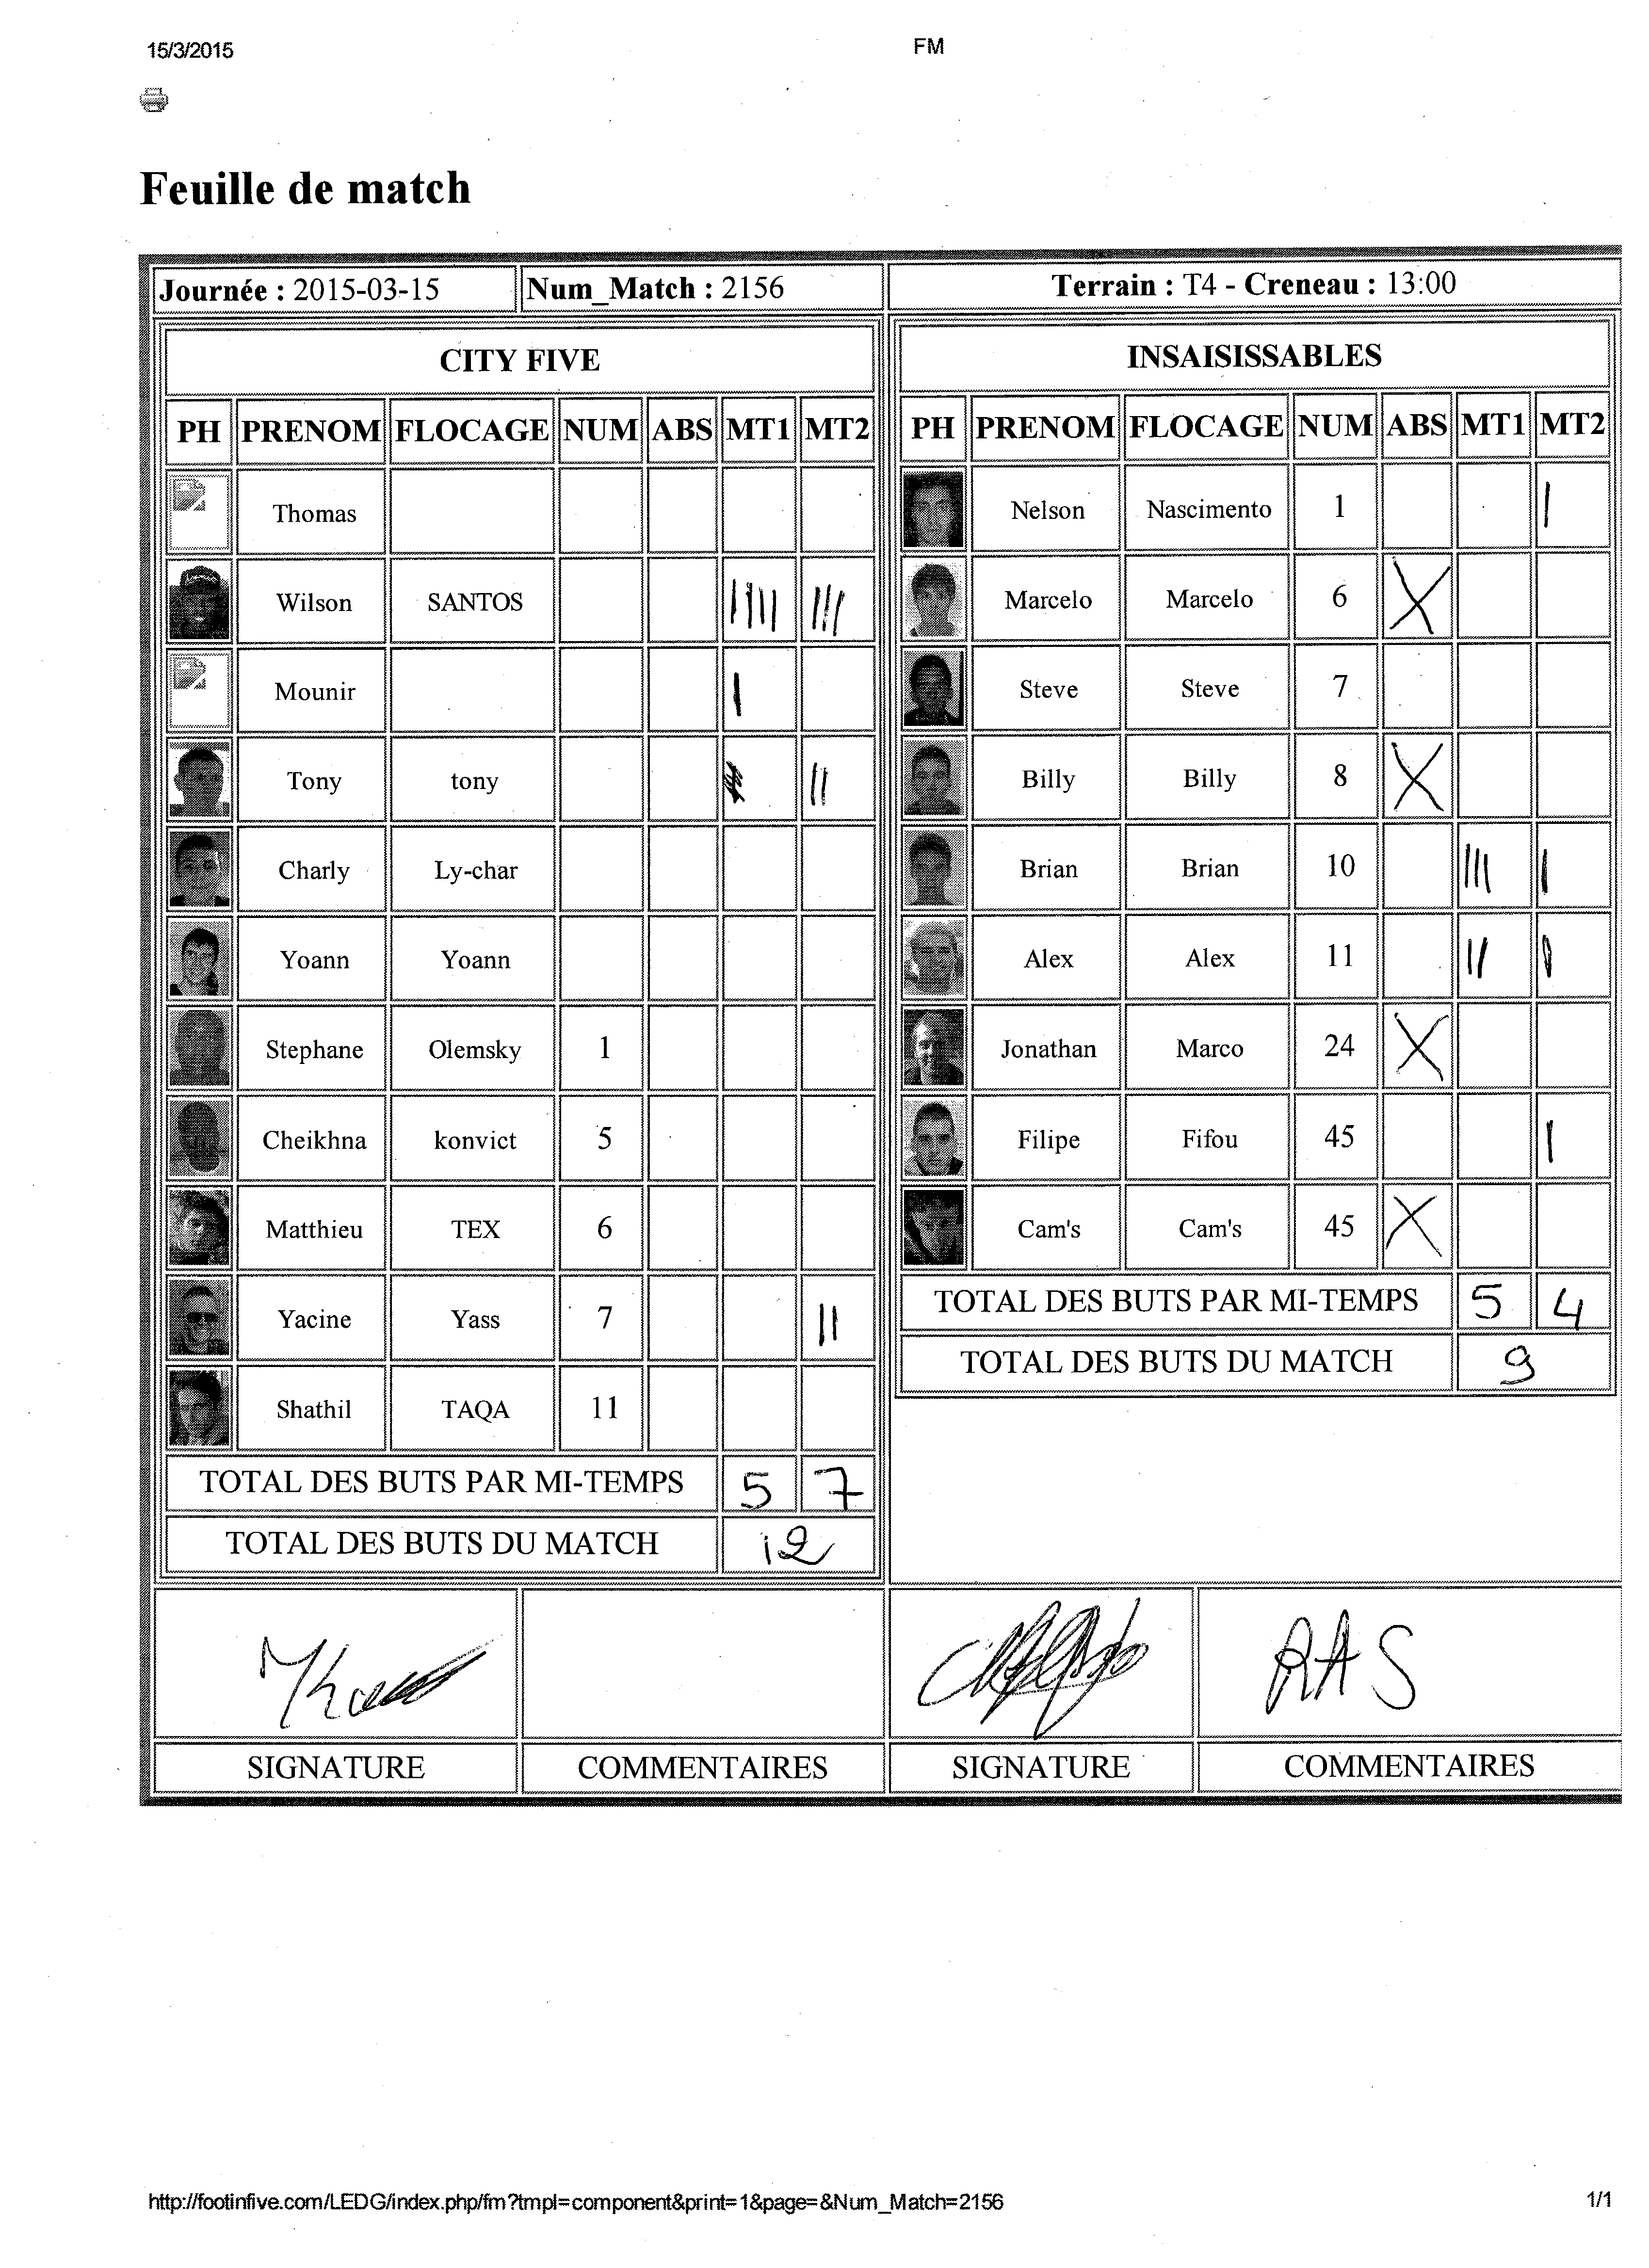 15/3/2015 FM
Feuille de match
Journée : 2015-03-15 Num_Match : 2156 Terrain : T4 - Creneau : 13:00
CITY FIVE
PH PRENOM FLOCAGE NUM ABS MT1 MT2
Thomas
Wilson SANTOS |||| |||
Mounir |
Tony tony ||
Charly Ly-char
Yoann Yoann
Stephane Olemsky 1
Cheikhna konvict 5
Matthieu TEX 6
Yacine Yass 7 ||
Shathil TAQA 11
TOTAL DES BUTS PAR MI-TEMPS 5 7
TOTAL DES BUTS DU MATCH 12
SIGNATURE COMMENTAIRES
INSAISISSABLES
PH PRENOM FLOCAGE NUM ABS MT1 MT2
Nelson Nascimento 1 |
Marcelo Marcelo 6 X
Steve Steve 7
Billy Billy 8 X
Brian Brian 10 ||| |
Alex Alex 11 || |
Jonathan Marco 24 X
Filipe Fifou 45 |
Cam's Cam's 45 X
TOTAL DES BUTS PAR MI-TEMPS 5 4
TOTAL DES BUTS DU MATCH 9
RAS
SIGNATURE COMMENTAIRES
http://footinfive.com/LEDG/index.php/fm?tmpl=component&print=1&page=&Num_Match=2156 1/1